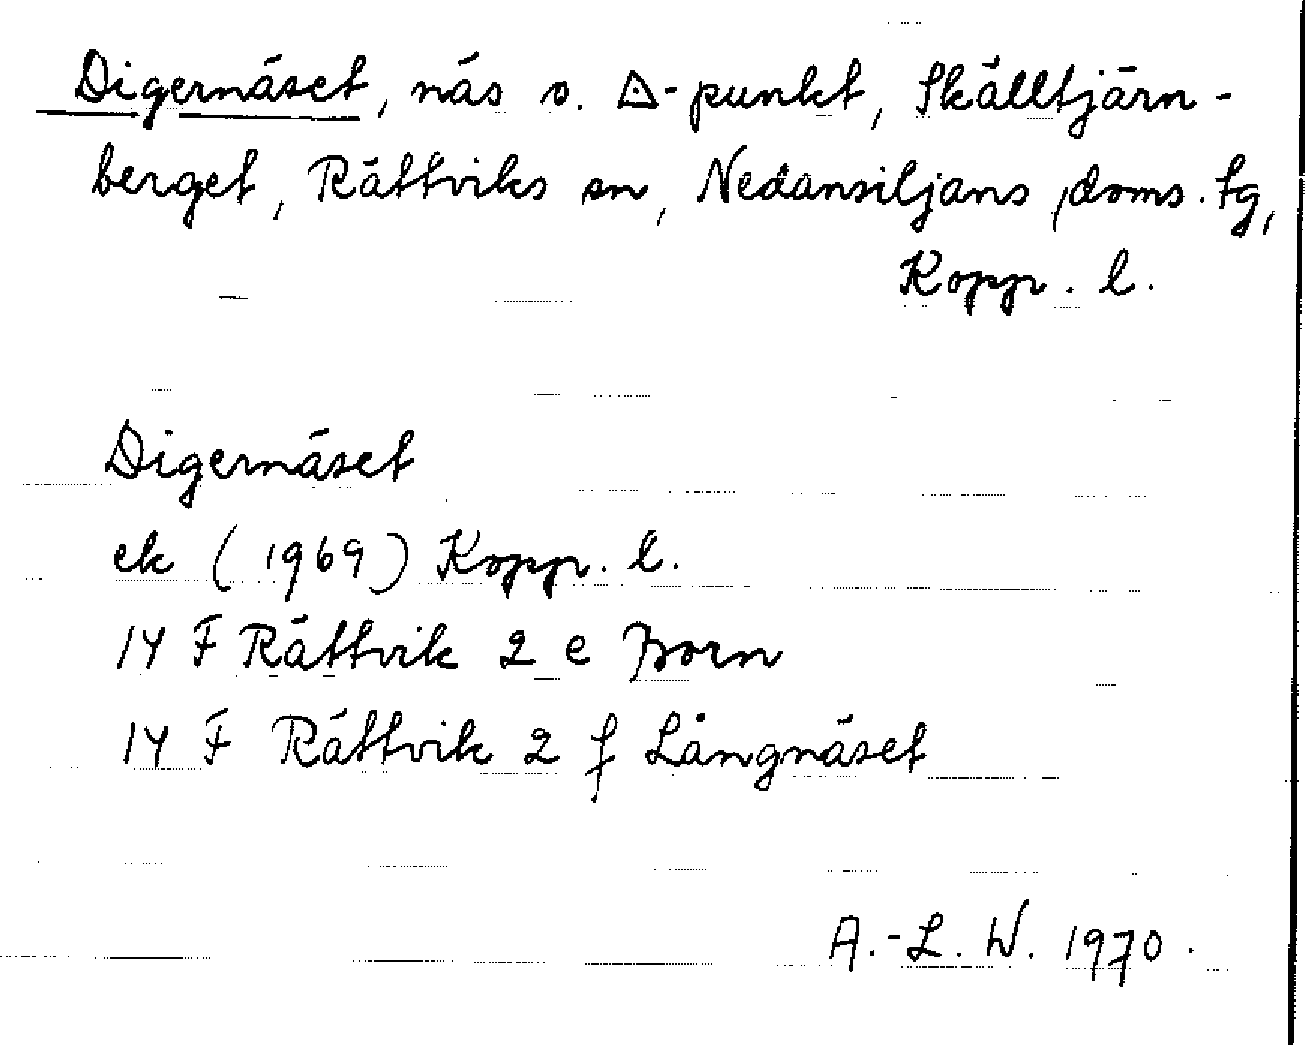 Digernäset, näs o. △-punkt, Skälltjärn-
berget, Rättviks sn, Nedansiljans doms. tg,
Kopp. l.
Digernäset
ek (1969) Kopp. l.
14 F Rättvik 2 e Born
14 F Rättvik 2 f Långnäset
A.-L. W. 1970.